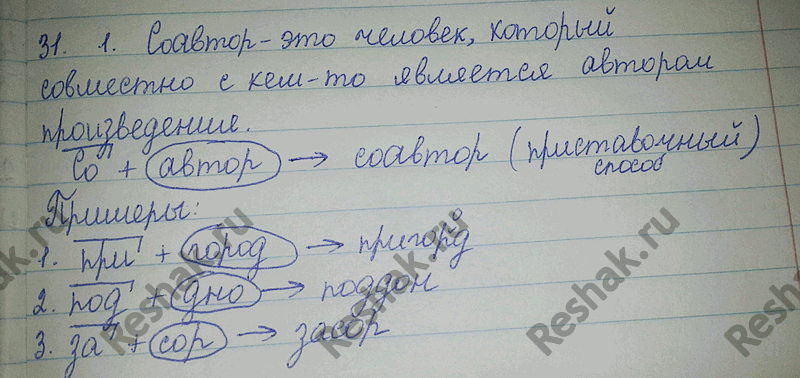 31. 1. Соавтор - это человек, который
совместно с кем-то является автором
произведения.
Со + автор → соавтор (приставочный
способ)
Примеры:
1. при + город → пригорд о
2. под + дно → поддон
3. за + сор → засор
Reshak.ru
Reshak.ru
Reshak.ru
Reshak.ru